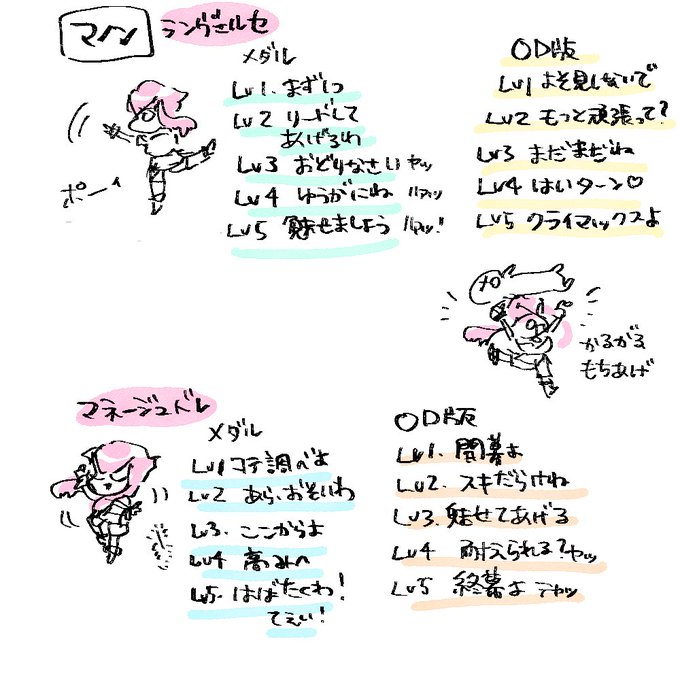 マノン
ランヴェルセ
メダル
Lv1. まずいっ
Lv2 リードして
あげるわ
Lv3 おどりなさい ヤッ
Lv4 ゆうがにね ハァッ
Lv5 魅せましょう ハァッ!
OD版
Lv1 よそ見しないで
Lv2 もっと頑張って?
Lv3 まだまだね
Lv4 はいターン♡
Lv5 クライマックスよ
ポーイ
かるがる
もちあげ
マネージュドレ
メダル
Lv1 コテ調べよ
Lv2 あら、おそいわ
Lv3. ここからよ
Lv4 高みへ
Lv5. はばたくわ!
てえい!
OD版
Lv1. 開幕よ
Lv2. スキだらけね
Lv3. 魅せてあげる
Lv4 耐えられる?ヤッ
Lv5 終幕よ テヤッ